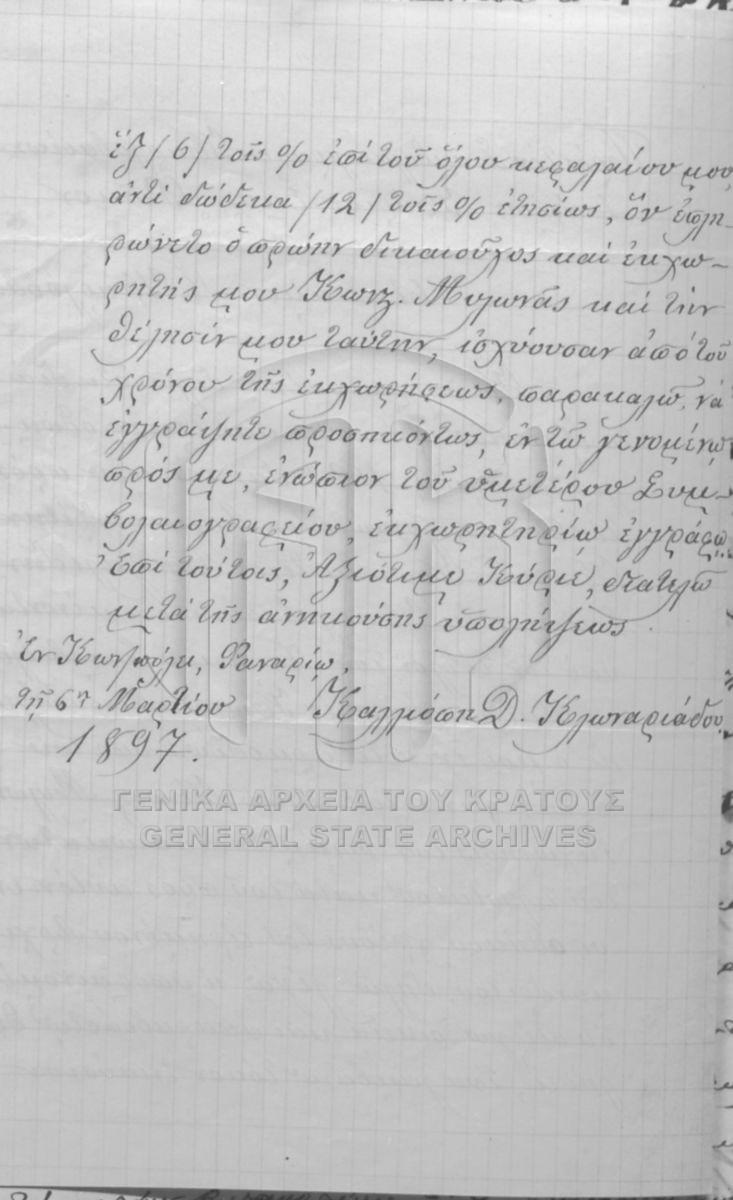 ἕξ /6/ τοῖς % ἐπί τοῦ ὅλου κεφαλαίου μου,
ἀντί δώδεκα /12/ τοῖς % ἐτησίως, ὅν ἐπλη-
ρώνετο ὁ πρώην δικαιοῦχος καί ἐκχω-
ρητής μου Κωνζ. Μυλωνᾶς καί τήν
θέλησίν μου ταύτην, ἰσχύουσαν ἀπό τοῦ
χρόνου τῆς ἐκχωρήσεως, παρακαλῶ, νά
ἐγγράψητε προσηκόντως, ἐν τῷ γενομένῳ
πρός με, ἐνώπιον τοῦ ὑμετέρου Συμ-
βολαιογραφείου, ἐκχωρητηρίῳ ἐγγράφῳ.
Ἐπί τούτοις, Ἀξιότιμε Κύριε, διατελῶ
μετά τῆς ἀνηκούσης ὑπολήψεως.
Ἐν Κωνζπόλει, Φαναρίῳ,
τῇ 6ῃ Μαρτίου Καλλιόπη Δ. Κλωναριάδου
1897.
ΓΕΝΙΚΑ ΑΡΧΕΙΑ ΤΟΥ ΚΡΑΤΟΥΣ
GENERAL STATE ARCHIVES